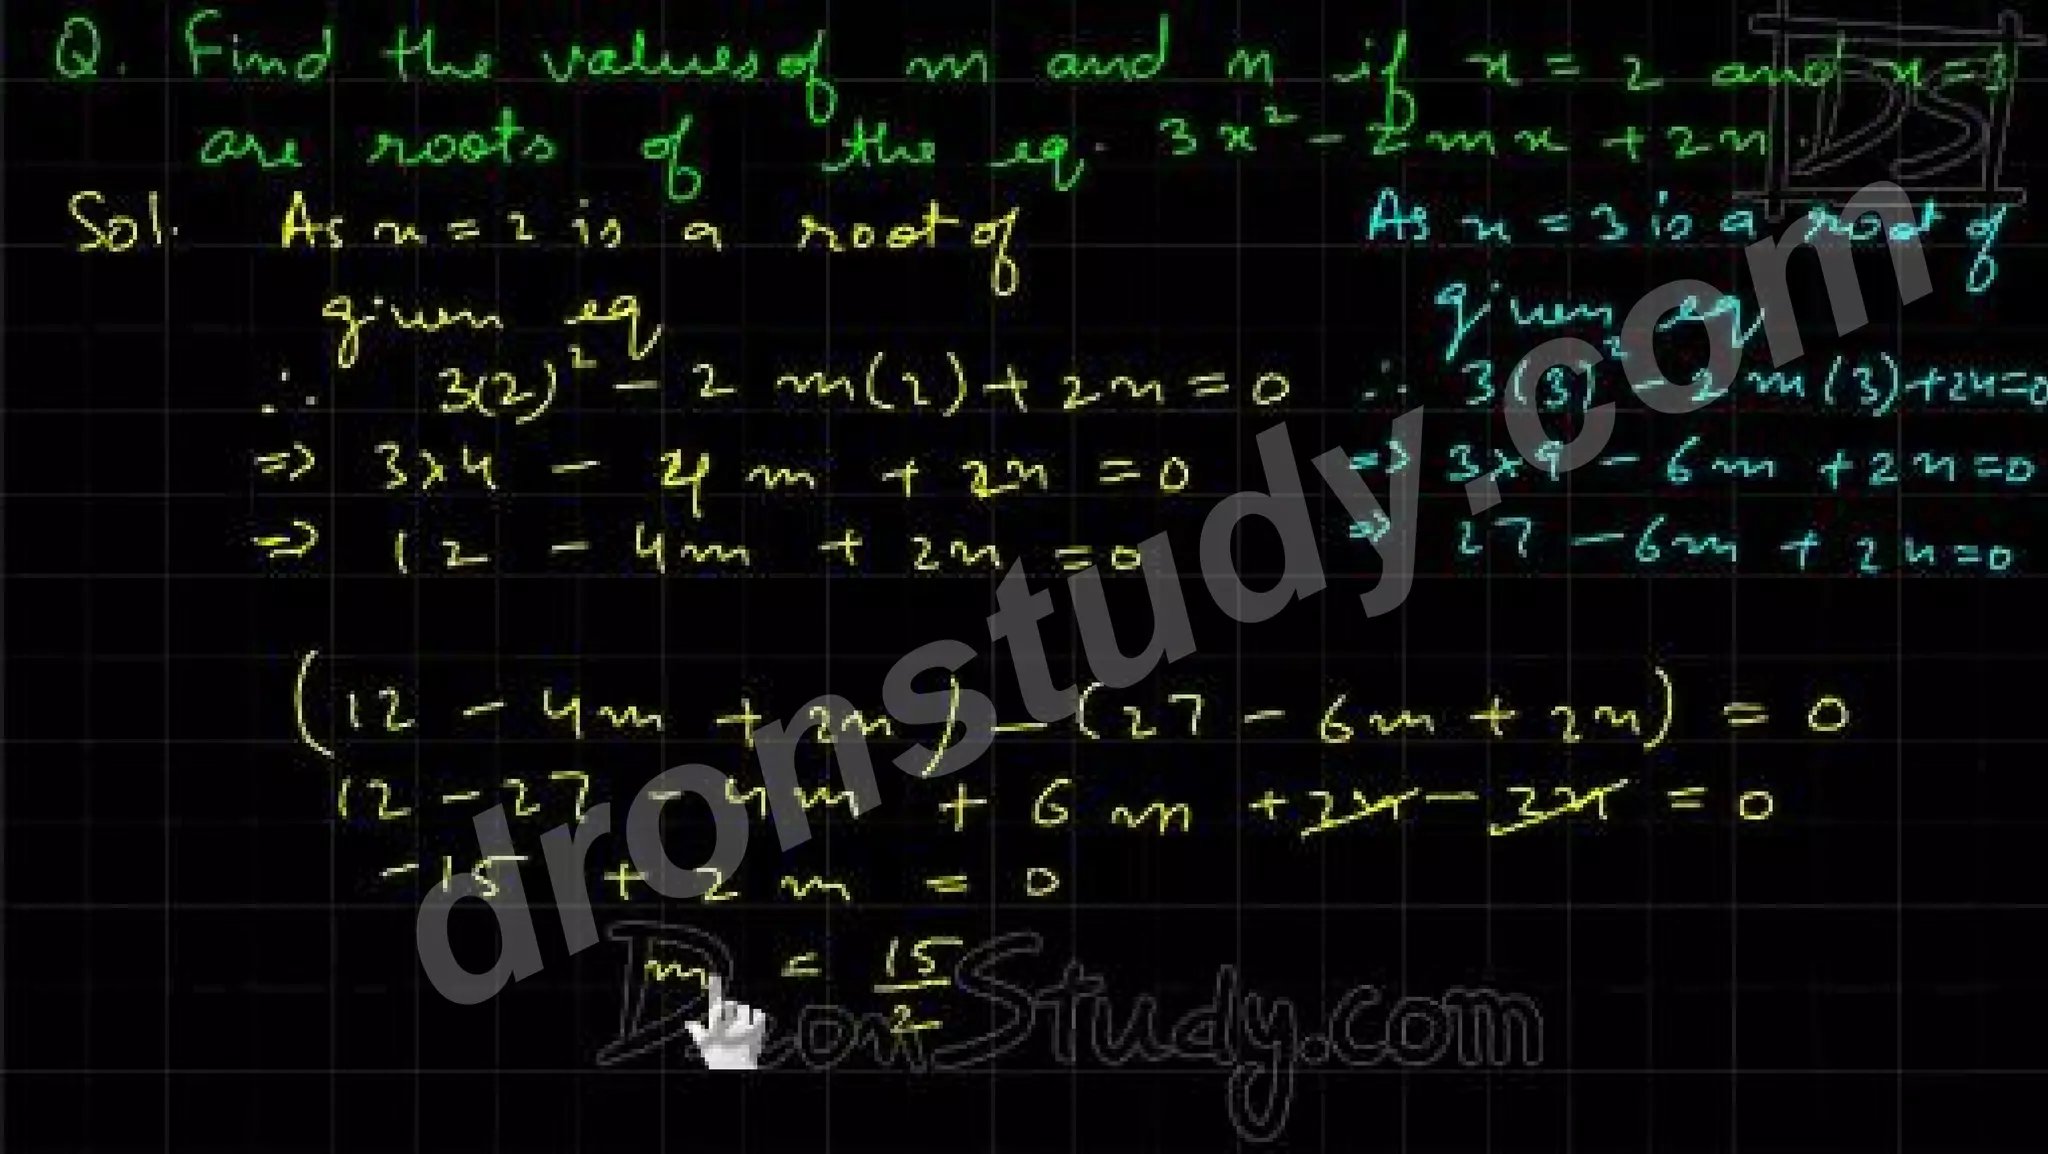 Q. Find the values of m and n if x = 2 and x = 3
are roots of the eq. 3x² - 2mx + 2n
DS
Sol. As x = 2 is a root of
given eq
∴ 3(2)² - 2m(2) + 2n = 0
⇒ 3×4 - 4m + 2n = 0
⇒ 12 - 4m + 2n = 0
As x = 3 is a root of
given eq
∴ 3(3)² - 2m(3) + 2n = 0
⇒ 3×9 - 6m + 2n = 0
⇒ 27 - 6m + 2n = 0
(12 - 4m + 2n) - (27 - 6m + 2n) = 0
12 - 27 - 4m + 6m + 2n - 2n = 0
-15 + 2m = 0
m = 15/2
dronstudy.com
DronStudy.com